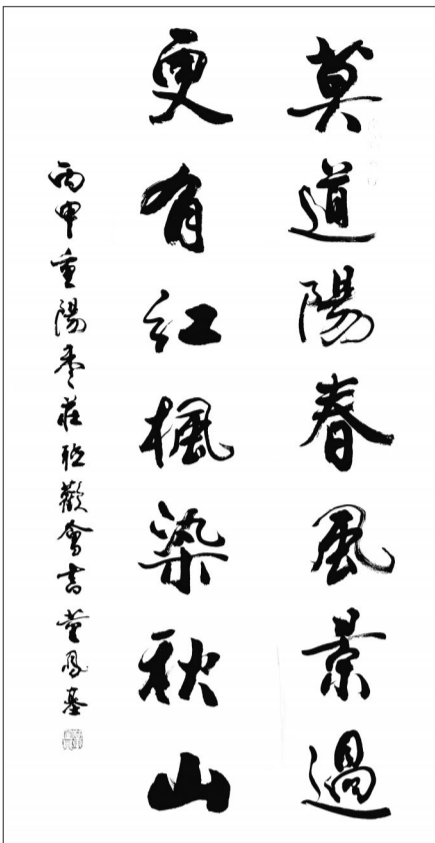 莫道陽春風景過
更有紅楓染秋山
丙申重陽枣莊聯歡會書董鳳基